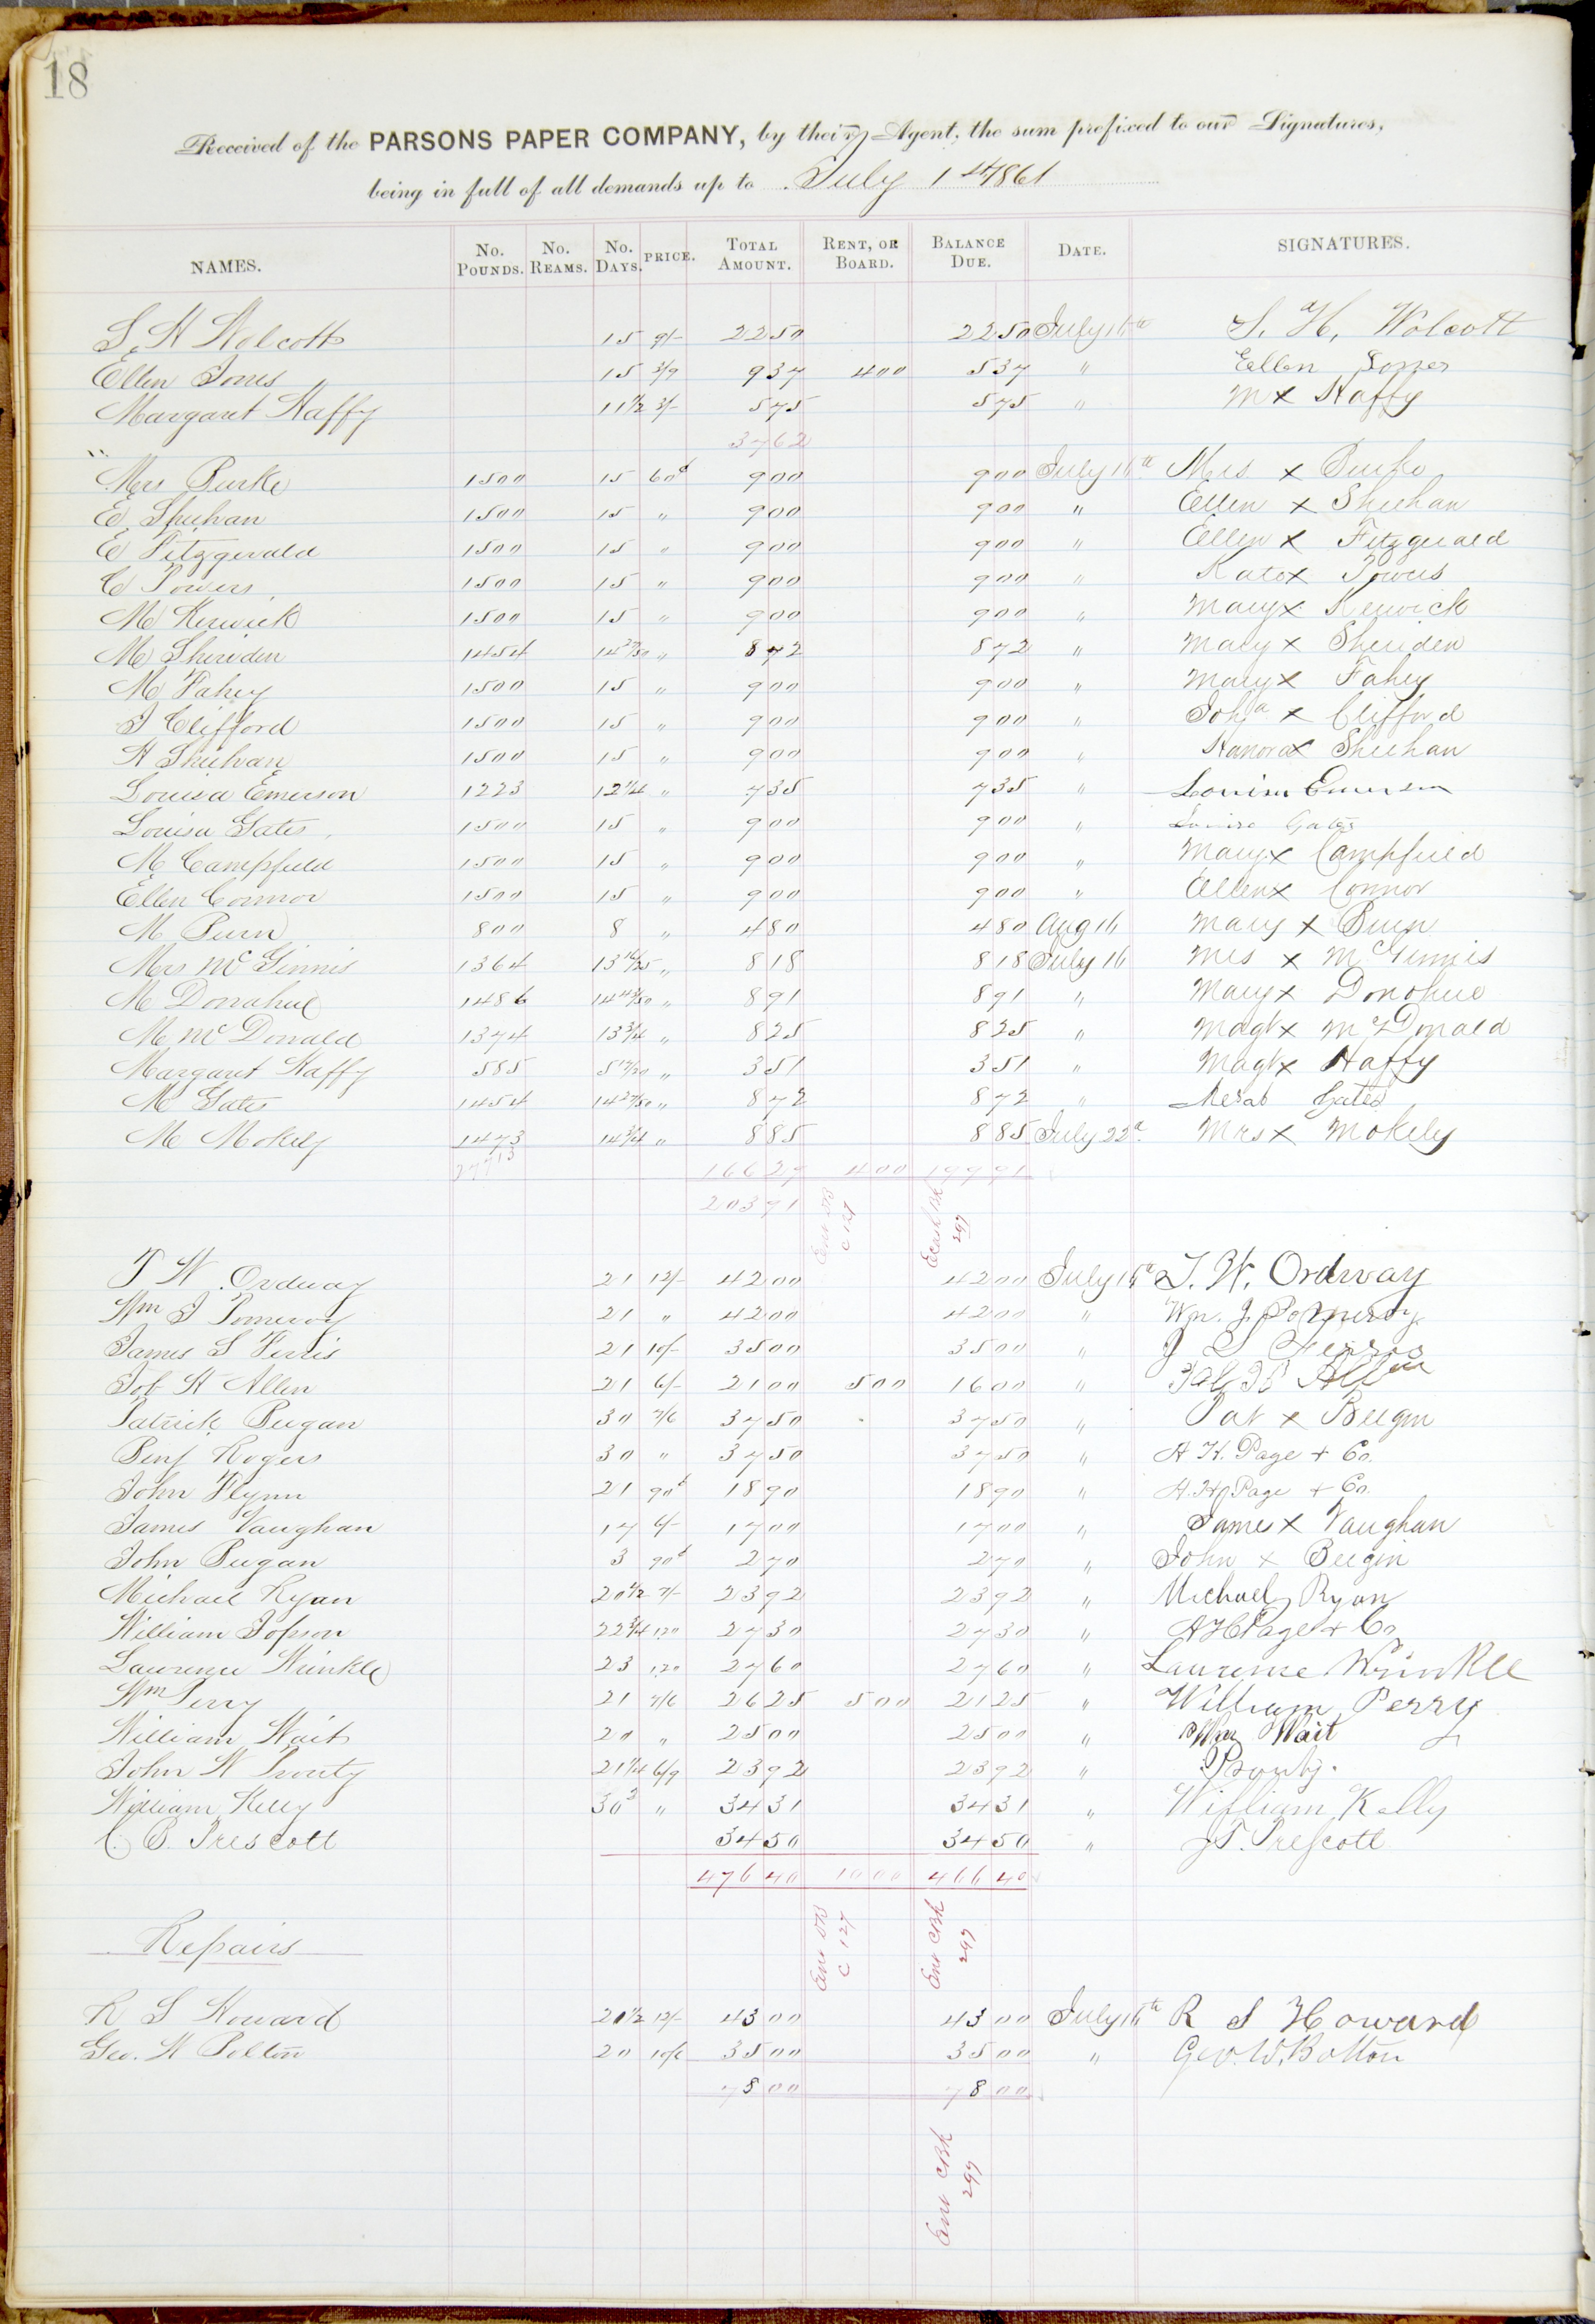 18
Received of the PARSONS PAPER COMPANY, by their Agent, the sum prefixed to our Signatures,
being in full of all demands up to July 1st 1861
NAMES. No. POUNDS. No. REAMS. No. DAYS. PRICE. TOTAL AMOUNT. RENT, OR BOARD. BALANCE DUE. DATE. SIGNATURES.
S. H Wolcott 15 9/- 22 50 22 50 July 16th S. H. Wolcott
Ellen Jones 15 3/9 9 37 4 00 5 37 " Ellen Jones
Margaret Haffy 11 1/2 3/- 5 75 5 75 " M x Haffy
37 62
Mrs Burke 1500 15 60c 9 00 9 00 July 16th Mrs x Burke
E Sheehan 1500 15 " 9 00 9 00 " Ellen x Sheehan
E Fitzgerald 1500 15 " 9 00 9 00 " Ellen x Fitzgerald
C Powers 1500 15 " 9 00 9 00 " Kate x Powers
M Kerwick 1500 15 " 9 00 9 00 " Mary x Kerwick
M Sheriden 1454 14 27/50 " 8 72 8 72 " Mary x Sheriden
M Fahey 1500 15 " 9 00 9 00 " Mary x Fahey
J Clifford 1500 15 " 9 00 9 00 " Joha x Clifford
H Sheehan 1500 15 " 9 00 9 00 " Hanora x Sheehan
Louisa Emerson 1223 12 1/4 " 7 35 7 35 " Louisa Emerson
Louisa Gates 1500 15 " 9 00 9 00 " Louisa Gates
M Campfield 1500 15 " 9 00 9 00 " Mary x Campfield
Ellen Connor 1500 15 " 9 00 9 00 " Ellen x Connor
M Burn 800 8 " 4 80 4 80 Aug 16 Mary x Burn
Mrs McGinnis 1364 13 16/25 " 8 18 8 18 July 16 Mrs x McGinnis
M Donahue 1486 14 43/50 " 8 91 8 91 " Mary x Donohue
M McDonald 1374 13 3/4 " 8 25 8 25 " Magt x McDonald
Margaret Haffy 585 5 17/20 " 3 51 3 51 " Magt x Haffy
M Gates 1454 14 27/50 " 8 72 8 72 " Gates
M Mokely 1473 14 3/4 " 8 85 8 85 July 22d Mrs x Mokely
27713 166 29 4 00 199 91
203 91
C 127 297
T W Ordway 21 12/- 42 00 42 00 July 16th T. W. Ordway
Wm J Pomeroy 21 " 42 00 42 00 " Wm. J. Pomeroy
James S Ferris 21 10/- 35 00 35 00 " J S Ferris
Job H Allen 21 6/- 21 00 5 00 16 00 " Allen
Patrick Beegan 30 7/6 37 50 37 50 " Pat x Beegin
Benj Rogers 30 " 37 50 37 50 " A H. Page + Co.
John Flynn 21 90c 18 90 18 90 " A. H. Page + Co.
James Vaughan 17 6/- 17 00 17 00 " James x Vaughan
John Beegan 3 90c 2 70 2 70 " John x Beegin
Michael Ryan 20 1/2 7/- 23 92 23 92 " Michael Ryan
William Jopson 22 3/4 120 27 30 27 30 " A H Page + Co
Lawrence Wrinkle 23 120 27 60 27 60 " Laurence Wrinkle
Wm Perry 21 7/6 26 25 5 00 21 25 " William Perry
William Wait 20 " 25 00 25 00 " Wm Wait
John W Prouty 21 1/4 6/9 23 92 23 92 " Prouty.
William Kelly 30 " 34 31 34 31 " William Kelly
C. B. Prescott 34 50 34 50 " Prescott
476 40 10 00 466 40
C 127 Ent CBk 297
Repairs
R S Howard 21 1/2 12/- 43 00 43 00 July 16th R S Howard
Geo. W Bolton 20 10/6 35 00 35 00 " Geo. W. Bolton
78 00 78 00
Ent CBk 297